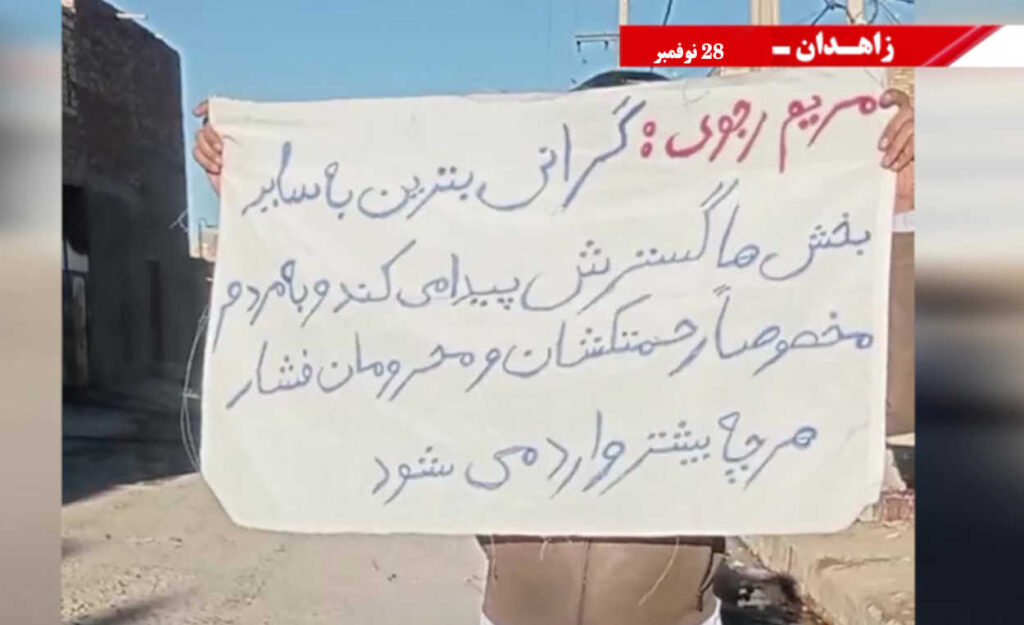 زاهـدان ـ 28 نوفمبر
مریم رجوی: گرانی بنزین به سایر
بخش ها گسترش پیدا می کند و به مردم
مخصوصاً زحمتکشان و محرومان فشار
هر چه بیشتر وارد می شود